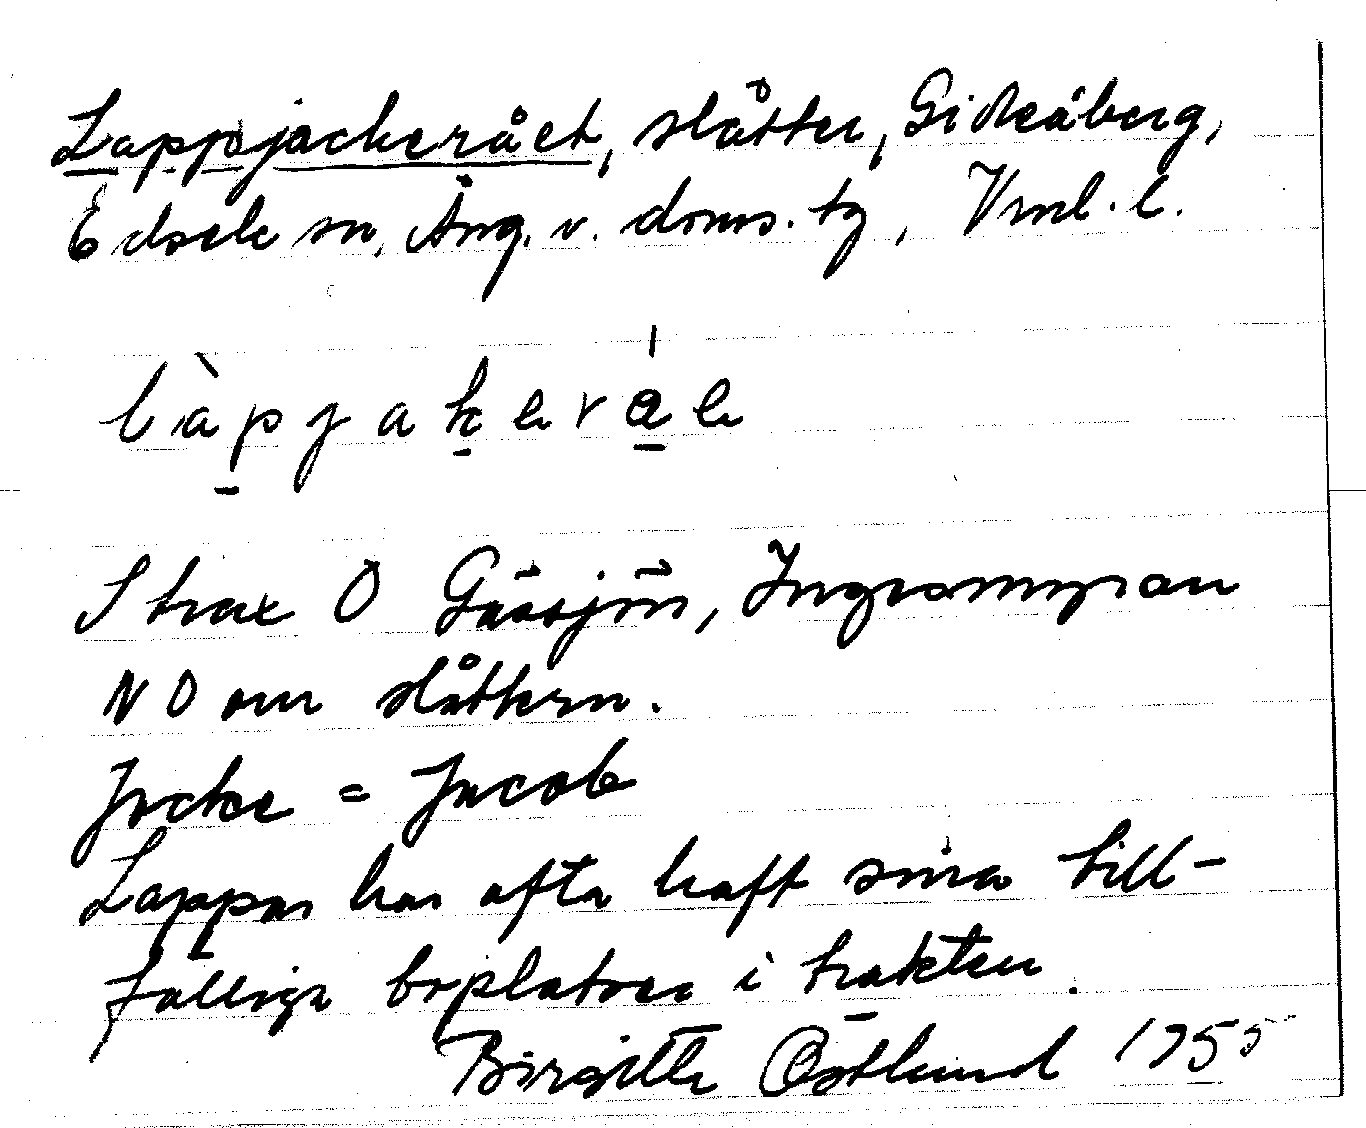 Lappjackerået, slåtter, Gideåberg,
Edsele sn, Ång. v. doms. tg, Vnl. l.
làpjakeråe
Strax O Gåssjön, Ingersmyran
NO om slåttern.
Jacke = Jacob
Lappar har ofta haft sina till-
fälliga boplatser i trakten.
Birgitta Östlund 1955